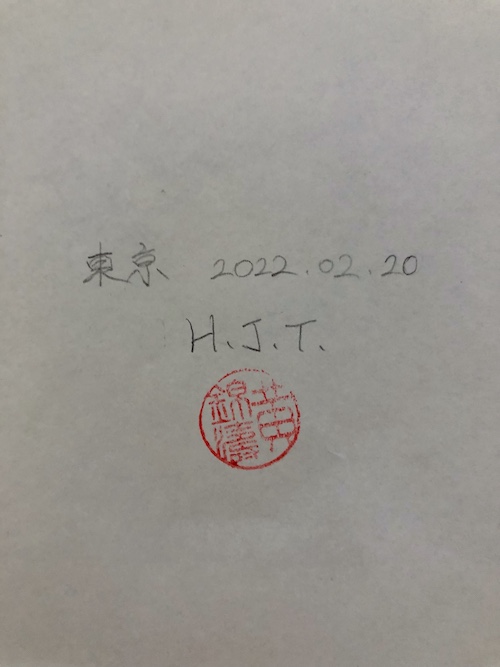 東京 2022.02.20
H.J.T.